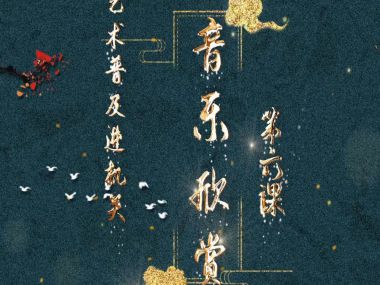 第一课
音乐欣赏
艺术普及进机关